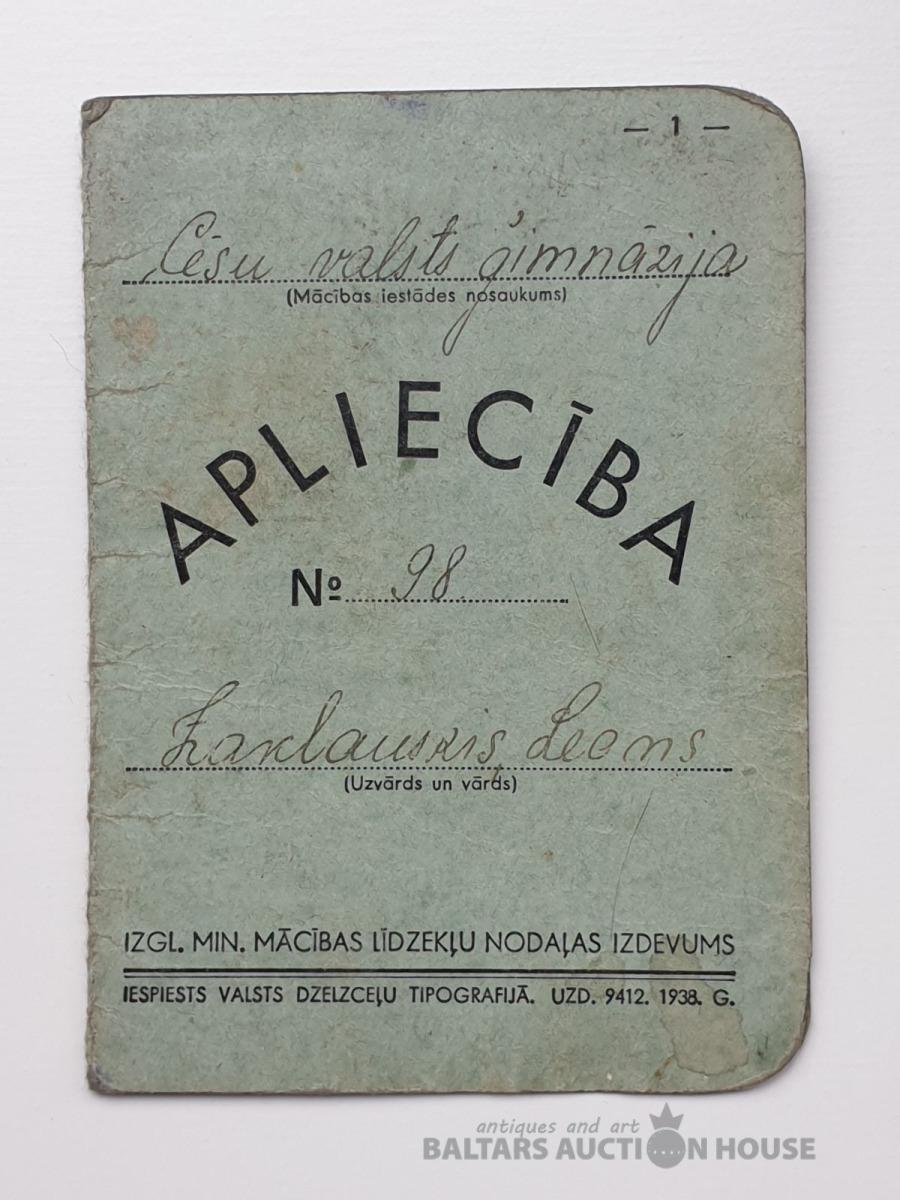 — 1 —
Cēsu valsts ģimnāzija
(Mācības iestādes nosaukums)
APLIECĪBA
№ 98
Zaklauskis, Leons
(Uzvārds un vārds)
IZGL. MIN. MĀCĪBAS LĪDZEKĻU NODAĻAS IZDEVUMS
IESPIESTS VALSTS DZELZCEĻU TIPOGRAFIJĀ. UZD. 9412. 1938. G.
antiques and art
BALTARS AUCTION HOUSE